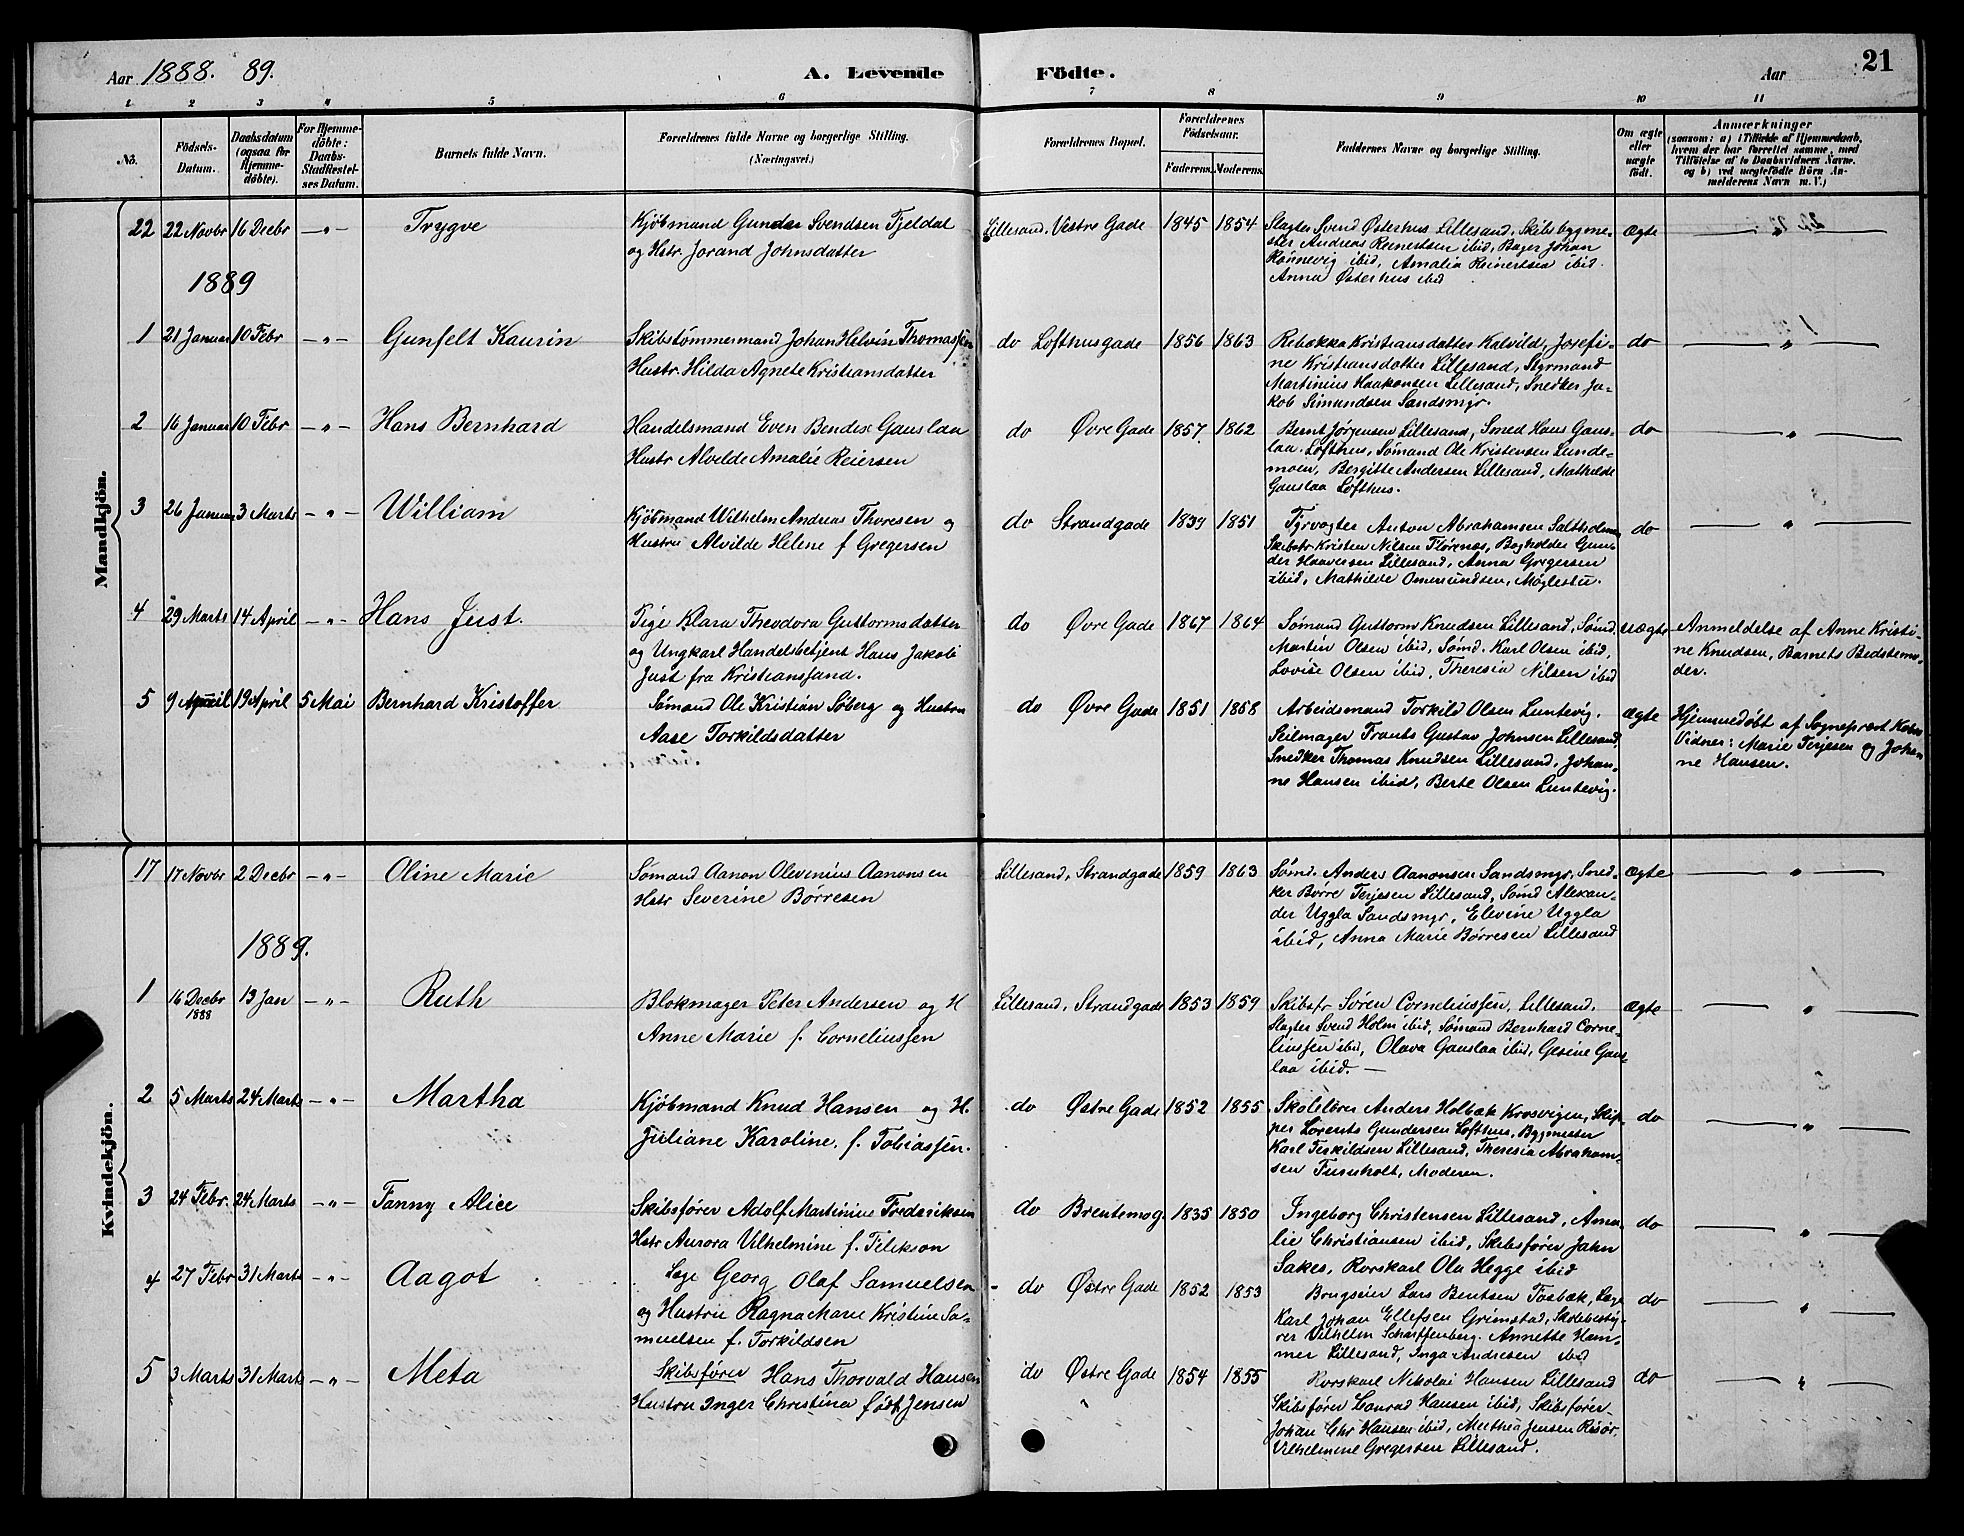 Aar 1888. 89. A. Levende Födte. Aar 21
1 2 3 4 5 6 7 8 9 10 11
No.
Födsels-Datum.
Daabsdatum (ogsaa for Hjemme-döbte).
For Hjemme-döbte: Daabs-Stadfæstel-ses Datum.
Barnets fulde Navn.
Forældrenes fulde Navne og borgerlige Stilling. (Næringsvei.)
Forældrenes Bopæl.
Forældrenes Födselsaar.
Faderens. Moderens.
Faddernes Navne og borgerlige Stilling.
Om ægte eller uægte födt.
Anmærkninger
(saasom: a) i Tilfælde af Hjemmedaab, hvem der har forrettet samme, med Tilföielse af to Daabsvidners Navne, og b) ved uægtefödte Börn Anmelderens Navn m. V.)
Mandkjön.
22 22 Novbr 16 Decbr -„- Trygve
Kjöbmand Gunder Svendsen Fjeldal
og Hstr. Jorand Johnsdatter
Lillesand, Vestre Gade 1845 1854
Slagter Svend Østerhus Lillesand, Skibsbygme-
ster Andreas Reinertsen ibid, Bager Johan
Rönnevig ibid, Amalia Reinertsen ibid.
Anna Østerhus ibid
Ægte „
1889
1 21 Januar 10 Febr -„- Gunfelt Kaurin
Skibstømmermand Johan Helvin Thomassen
Hustr. Hilda Agnete Kristiansdatter
do Lofthusgade 1856 1863
Rebekka Kristiansdatter Kalvild, Josefi-
ne Kristiansdatter Lillesand, Styrmand
Martinius Haakonsen Lillesand, Snedker Ja-
kob Simundsen Sandsmyr.
do „
2 16 Januar 10 Febr -„- Hans Bernhard
Handelsmand Even Bendix Gauslaa
Hustr Alvilde Amalie Reiersen
do Øvre Gade 1857. 1862
Bernt Jørgensen Lillesand, Smed Hans Gaus-
laa Lofthus, Sömand Ole Kristensen Lunde-
moen, Bergitte Andersen Lillesand, Mathilde
Gauslaa Lofthus.
do „
3 26 Januar 3 Marts -„- William
Kjöbmand Wilhelm Andreas Thoresen og
Hustru Alvilde Helene f Gregersen
do Strandgade 1839 1851
Fyrvogter Anton Abrahamsen Saltholmen
Skibsfr Kristen Nilsen Flörenæs, Bogholder Gun-
der Haaversen Lillesand, Anna Gregersen
ibid, Mathilde Omundsen, Möglestu.
do „
4 29 Marts 14 April -„- Hans Just.
Pige Klara Theodora Guttormsdatter
og Ungkarl Handelsbetjent Hans Jakob
Just fra Kristianssand.
do Øvre Gade 1867 1864
Sömand Guttorm Knudsen Lillesand, Sömd.
Martin Olsen ibid, Sömd. Karl Olsen ibid,
Lovise Olsen ibid, Theresia Nilsen ibid
uægte Anmeldelse af Anne Kristi-
ne Knudsen, Barnets Bedstemo-
der.
5 9 April 19 April 5 Mai Bernhard Kristoffer
Sömand Ole Kristian Söberg og Hustru
Aase Torkildsdatter
do Øvre Gade 1851 1858
Arbeidsmand Torkild Olsen Luntevig.
Seilmager Frants Gustav Johnsen Lillesand,
Snedker Thomas Knudsen Lillesand, Johan-
ne Hansen ibid, Berte Olsen Luntevig.
Ægte Hjemmedöbt af Sogneprest
Vidner: Marie Terjesen og Johan-
ne Hansen.
Kvindekjön.
17 17 Novbr 2 Decbr -„- Oline Marie
Sömand Aanon Olevinius Aanonsen
Hstr Severine Børresen
Lillesand, Strandgade 1859 1863
Sömd. Anders Aanonsen Sandsmyr, Sned-
ker Børre Terjesen Lillesand, Sömd Alexan-
der Uggla Sandsmyr, Elevine Uggla
ibid, Anna Marie Børresen Lillesand
Ægte „
1889.
1 16 Decbr 1888 13 Jan -„- Ruth
Blokmager Peter Andersen og H
Anne Marie f. Corneliussen
Lillesand, Strandgade 1853 1859
Skibsfr Sören Corneliussen, Lillesand.
Slagter Svend Holm ibid, Sömand Bernhard Corne-
liussen ibid, Olava Gauslaa ibid, Gesine Gaus-
laa ibid. —
Ægte „
2 5 Marts 24 Marts -„- Martha
Kjöbmand Knud Hansen og H.
Juliane Karoline, f. Tobiassen.
do Østre Gade 1852 1855
Skolelærer Anders Holbæk Krosvigen, Skip-
per Lorents Gundersen Lofthus, Bygmester
Karl Terkildsen Lillesand, Theresia Abraham-
sen Furuholt, Moderen.
do „
3 24 Febr. 24 Marts -„- Fanny Alice
Skibsfører Adolf Martinius Frederiksen
Hstr Aurora Vilhelmine f. Filikson
do Brentemog. 1835 1850
Ingeborg Christensen Lillesand, Ama-
lie Christiansen ibid, Skibsfører Jahn
Sakes, Rorskarl Ola Hegge ibid
do „
4 27 Febr 31 Marts -„- Aagot
Læge Georg Olaf Samuelsen
og Hustru Ragna Marie Kristine Sa-
muelsen f. Torkildsen
do Østre Gade 1852 1853
Brugseier Lars Bentsen Fosbæk, Læge
Karl Johan Ellefsen Grimstad, Skolebesty-
rer Vilhelm Scharffenberg. Annette Ham-
mer Lillesand, Inga Andresen ibid
do „
5 3 Marts 31 Marts -„- Meta
Skibsfører Hans Thorvald Hansen
Hustru Inger Christina født Jensen
do Østre Gade 1854 1855
Rorskarl Nikolai Hansen Lillesand
Skibsfører Conrad Hansen ibid, Skibsfører
Johan Chr Hansen ibid, Mathea Jensen Risør,
Vilhelmine Gregersen Lillesand.
do „